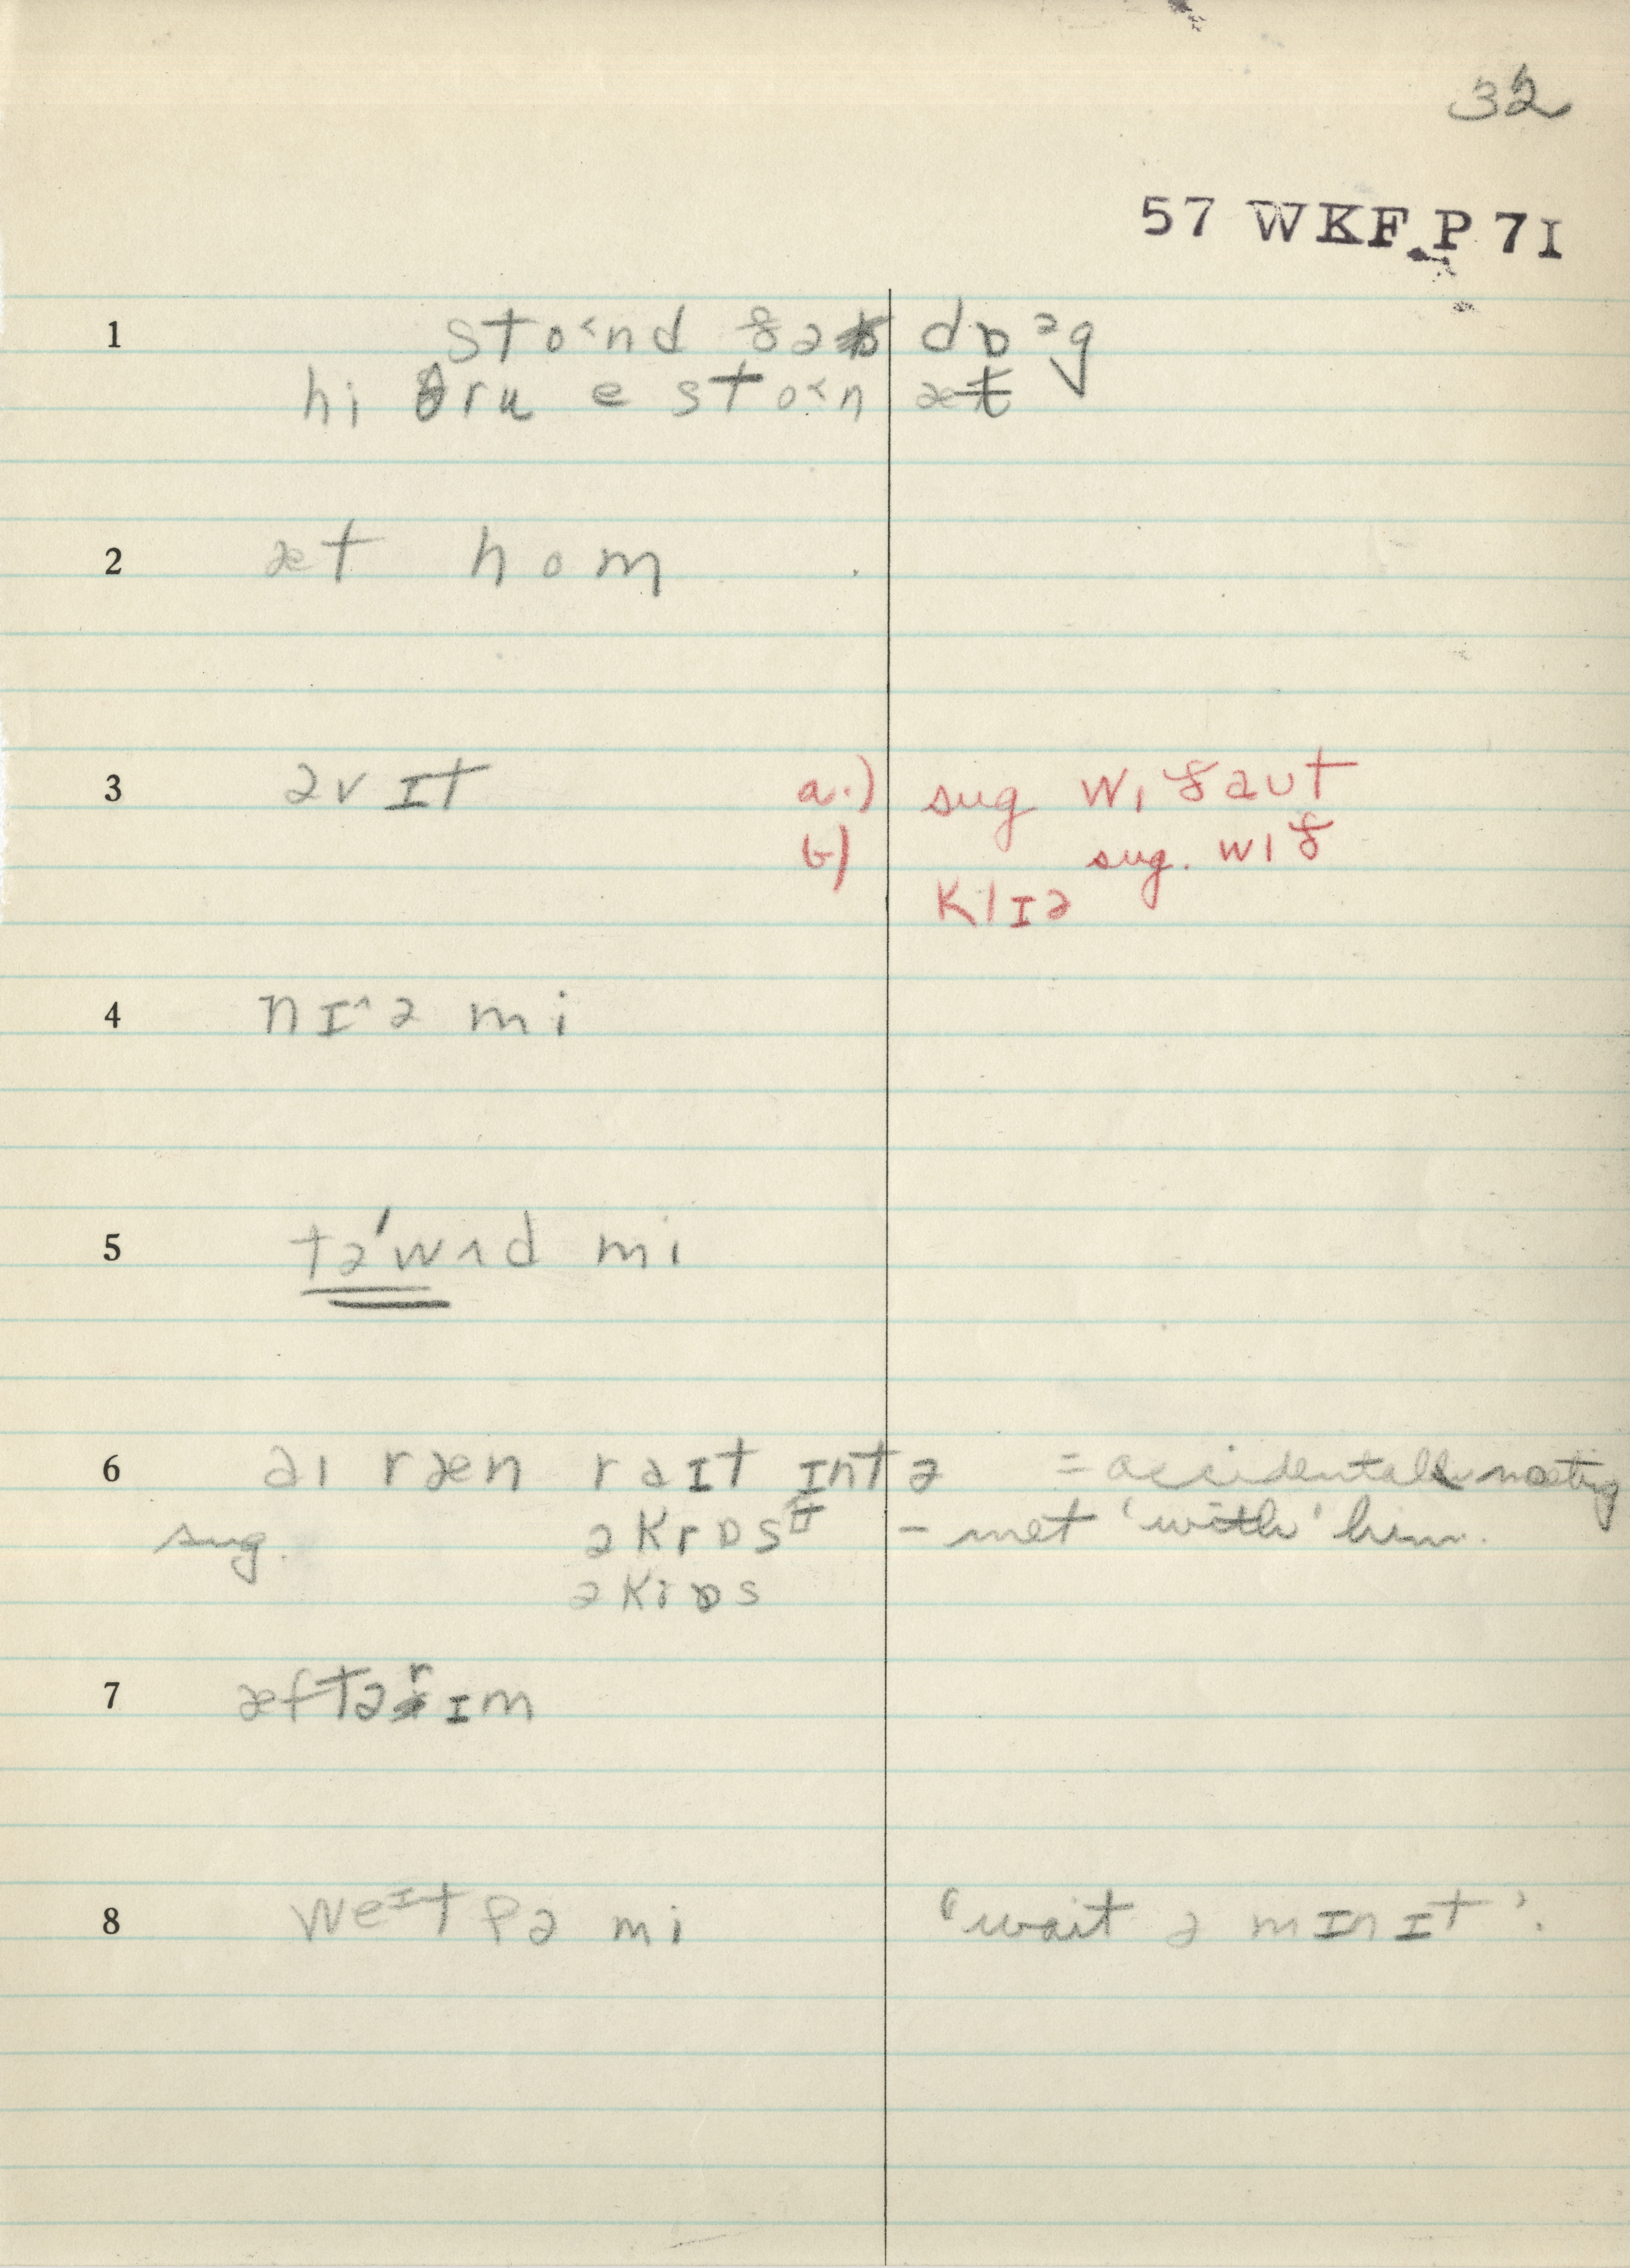 32
57 WKF P 7I
1 sto˂nd ðə dɒᵊg
hi θru e sto˂n æt
2 æt hom
3 əv ɪt a.) sug wɪðaut
b) sug. wɪð
klɪə
4 nɪ^ə mi
5 tə'wʌd mi
6 aɪ ræn raɪt ɪntə = accidental meeting
sug. əkrɒsᵗ – met 'with' him.
əkrɒs
7 æftərɪm
8 weᶦt fə mi 'wait ə mɪnɪt'.